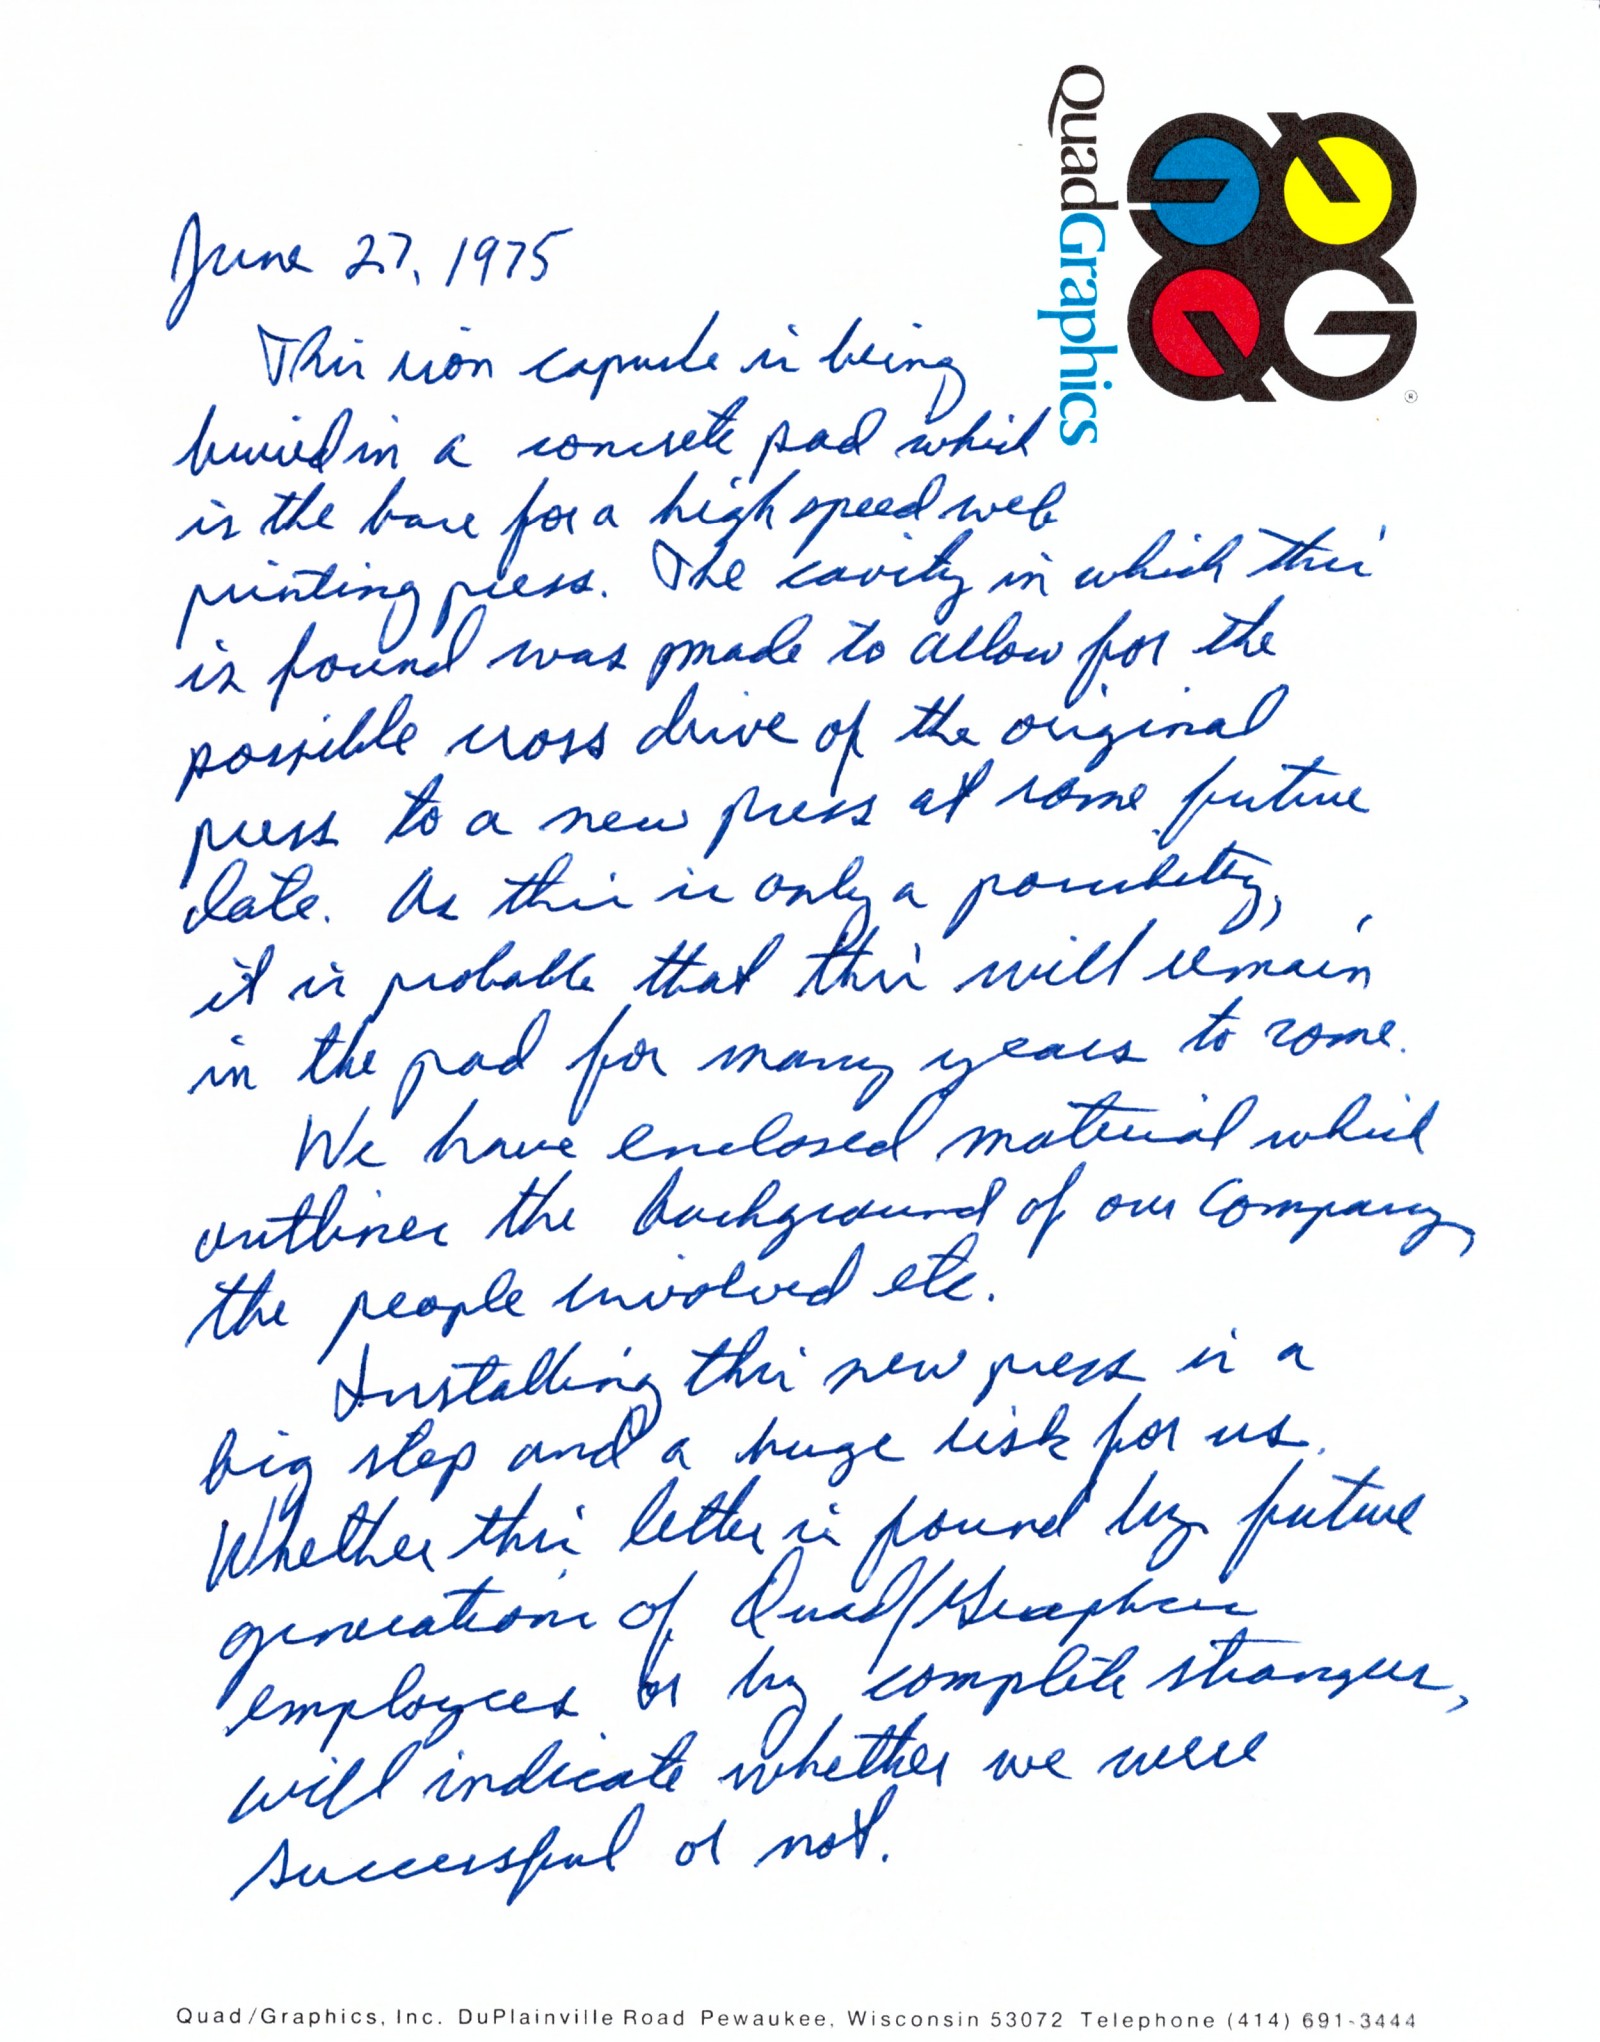 QuadGraphics
June 27, 1975
This iron capsule is being
buried in a concrete pad which
is the base for a high speed web
printing press. The cavity in which this
is found was made to allow for the
possible cross drive of the original
press to a new press at some future
date. As this is only a possibility,
it is probable that this will remain
in the pad for many years to come.
We have enclosed material which
outlines the background of our company,
the people involved etc.
Installing this new press is a
big step and a huge risk for us.
Whether this letter is found by future
generations of Quad/Graphics
employees or by complete strangers,
will indicate whether we were
successful or not.
Quad/Graphics, Inc. DuPlainville Road Pewaukee, Wisconsin 53072 Telephone (414) 691-3444